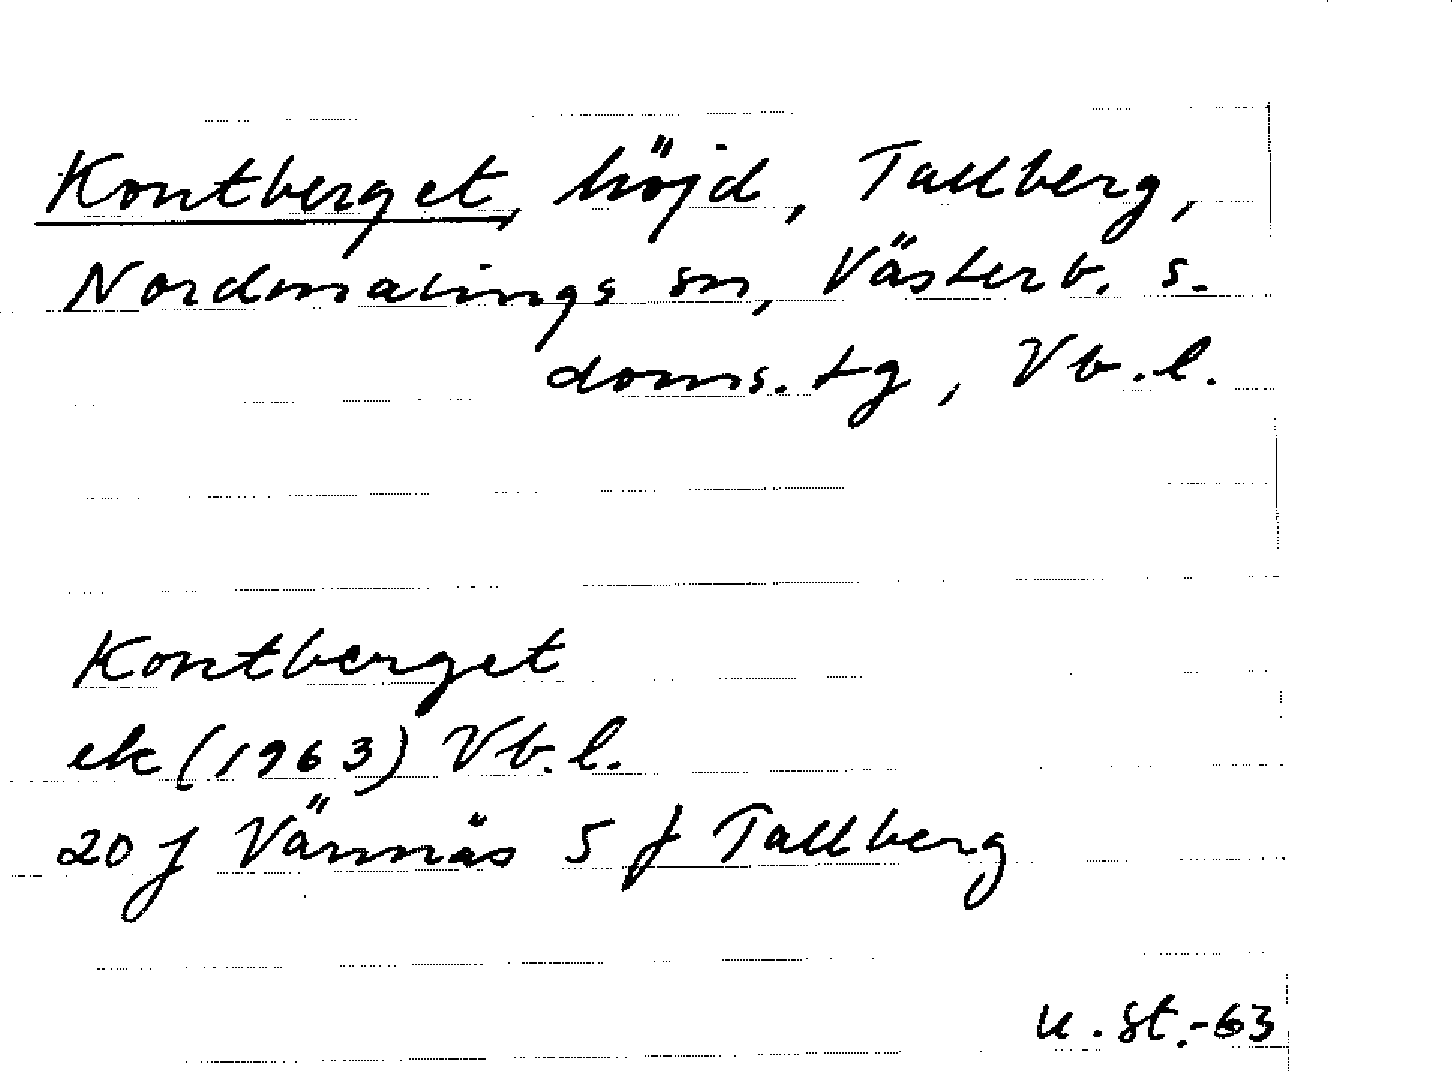 Kontberget, höjd, Tallberg,
Nordmalings sn, Västerb. s.
doms. tg, Vb.l.
Kontberget
ek (1963) Vb.l.
20 J Vännäs 5 f Tallberg
u. st.-63